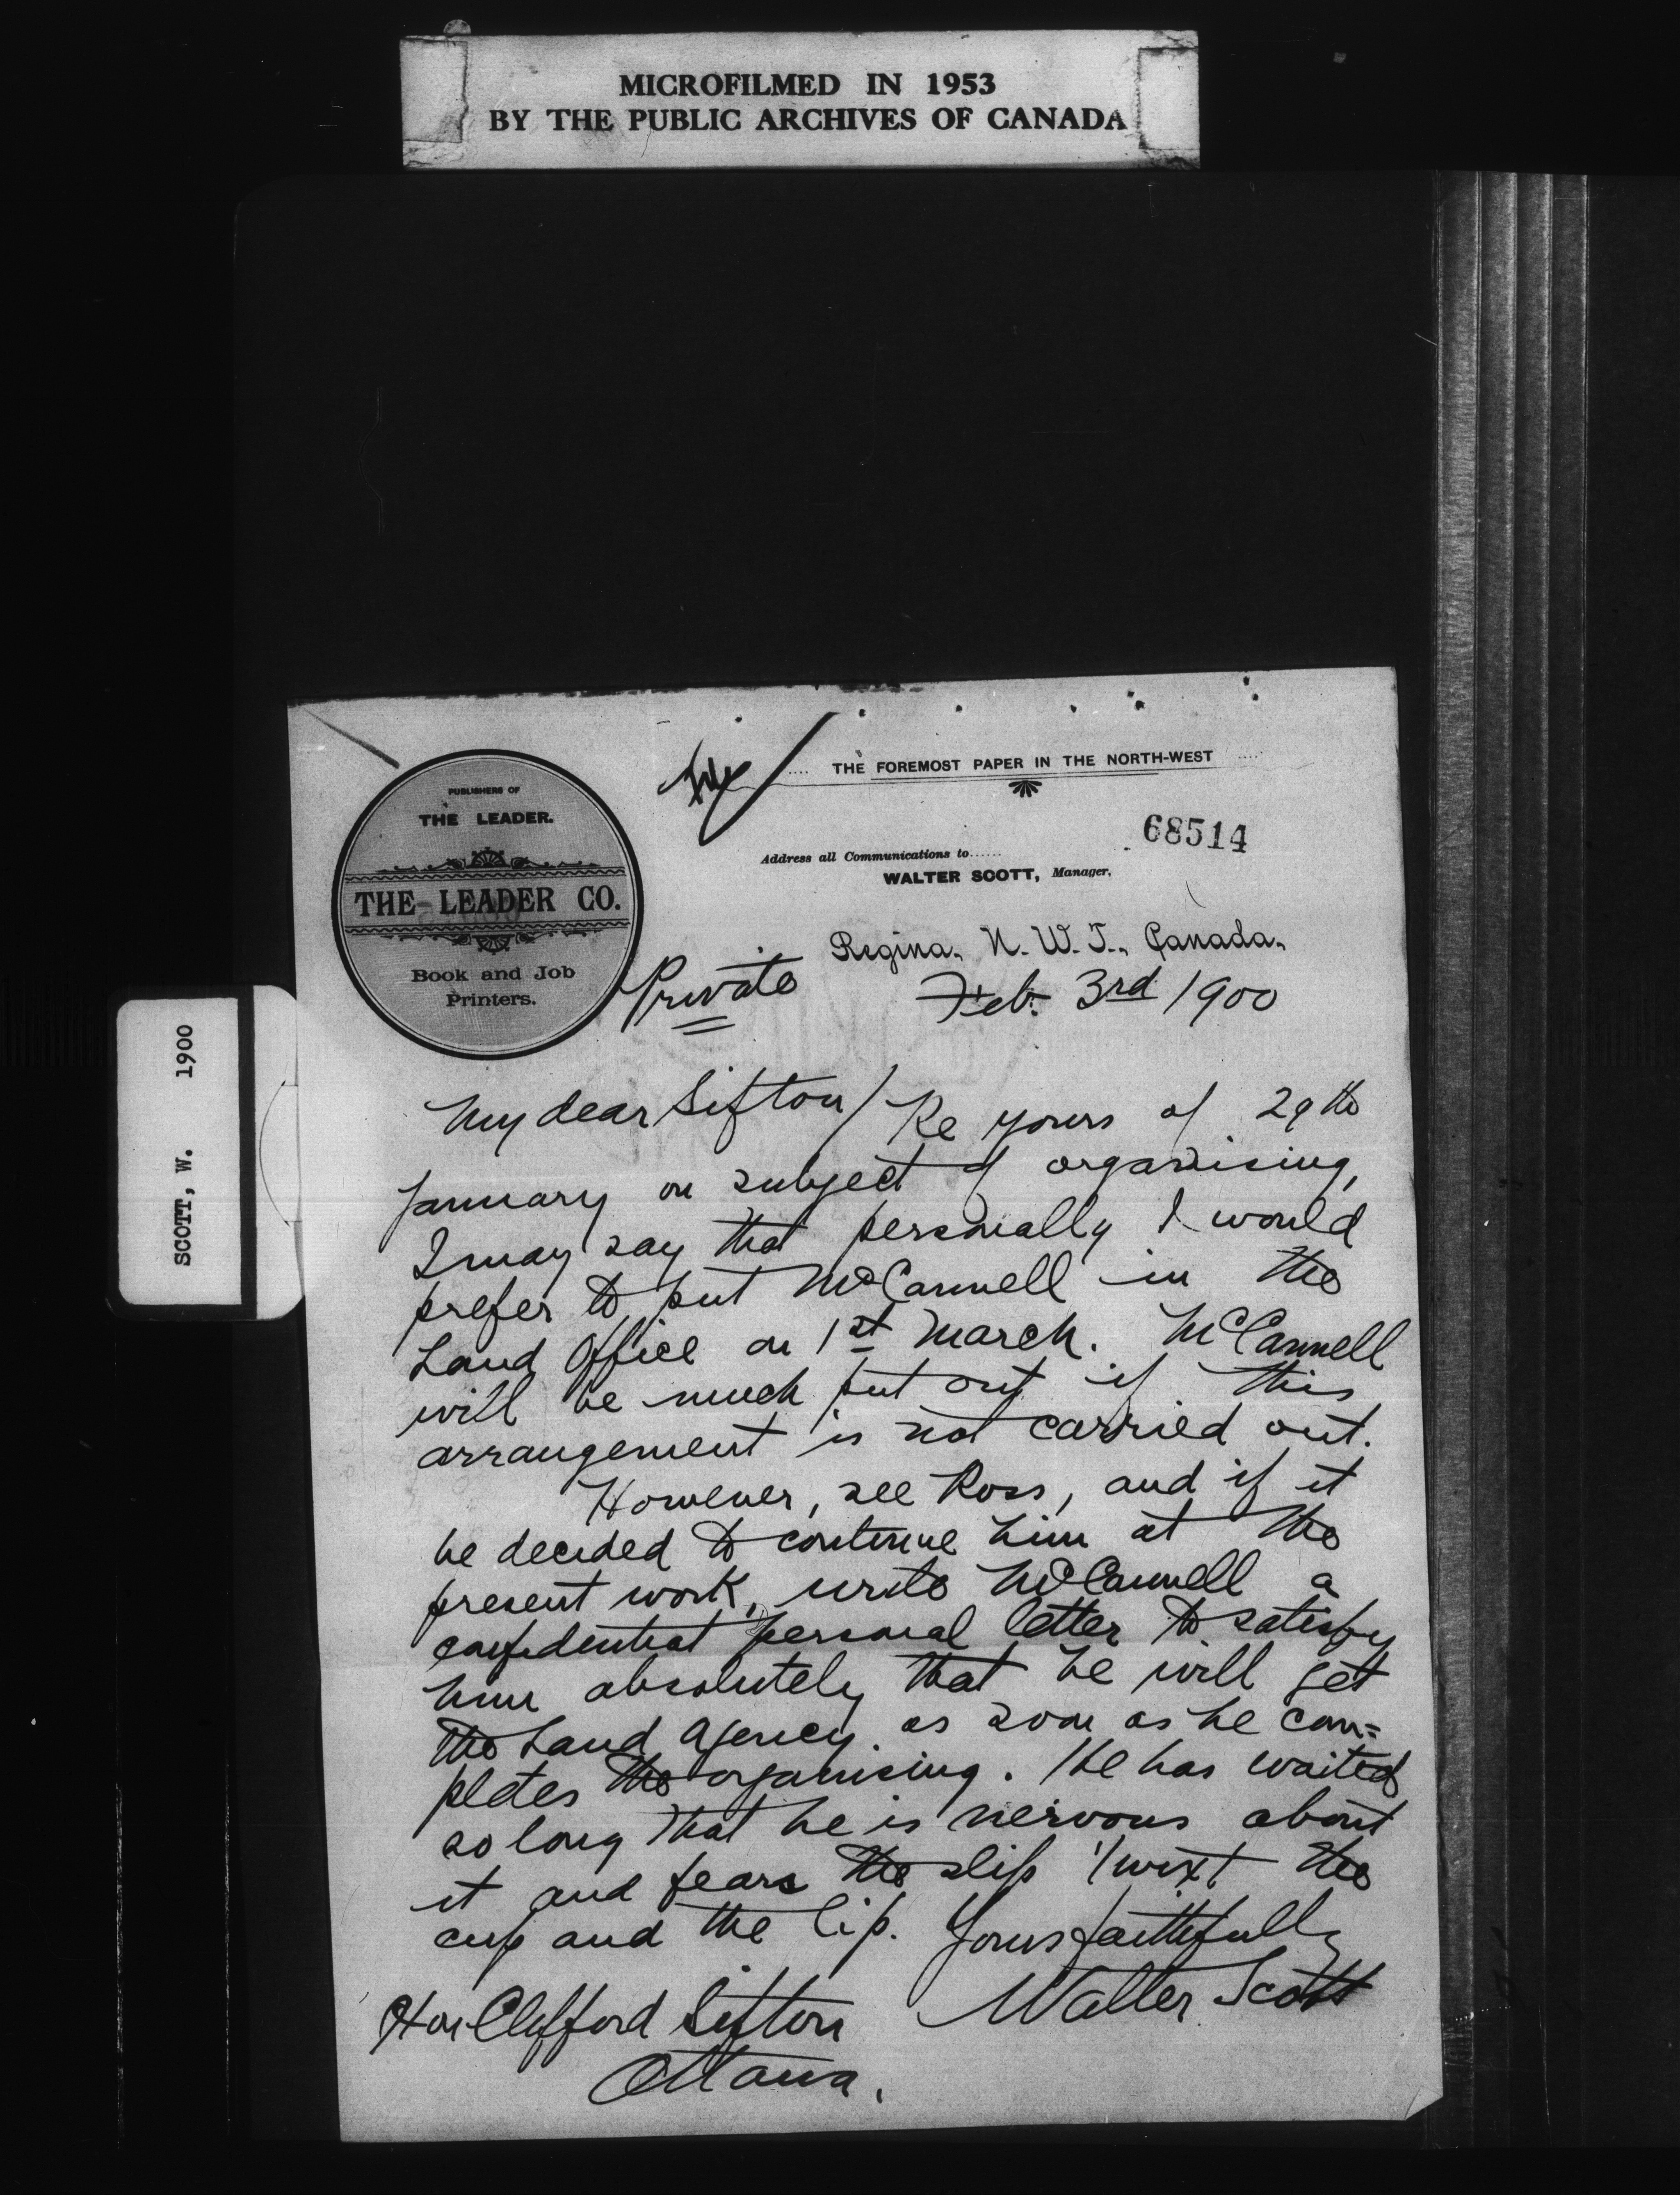 MICROFILMED IN 1953
BY THE PUBLIC ARCHIVES OF CANADA
SCOTT, W. 1900
PUBLISHERS OF
THE LEADER.
THE LEADER CO.
Book and Job
Printers.
THE FOREMOST PAPER IN THE NORTH-WEST
68514
Address all Communications to......
WALTER SCOTT, Manager.
Regina, N. W. T., Canada,
Private
Feb. 3rd 1900
My dear Sifton/ Re yours of 29th
January on subject of organising,
I may say that personally I would
prefer to put McCannell in the
Land Office on 1st March. McCannell
will be much put out if this
arrangement is not carried out.
However, see Ross, and if it
be decided to continue him at the
present work, write McCannell a
confidential personal letter to satisfy
him absolutely that he will get
the Land Agency as soon as he com=
pletes the organising. He has waited
so long that he is nervous about
it and fears the slip 'twixt the
cup and the lip. Yours faithfully
Walter Scott
Hon Clifford Sifton
Ottawa.